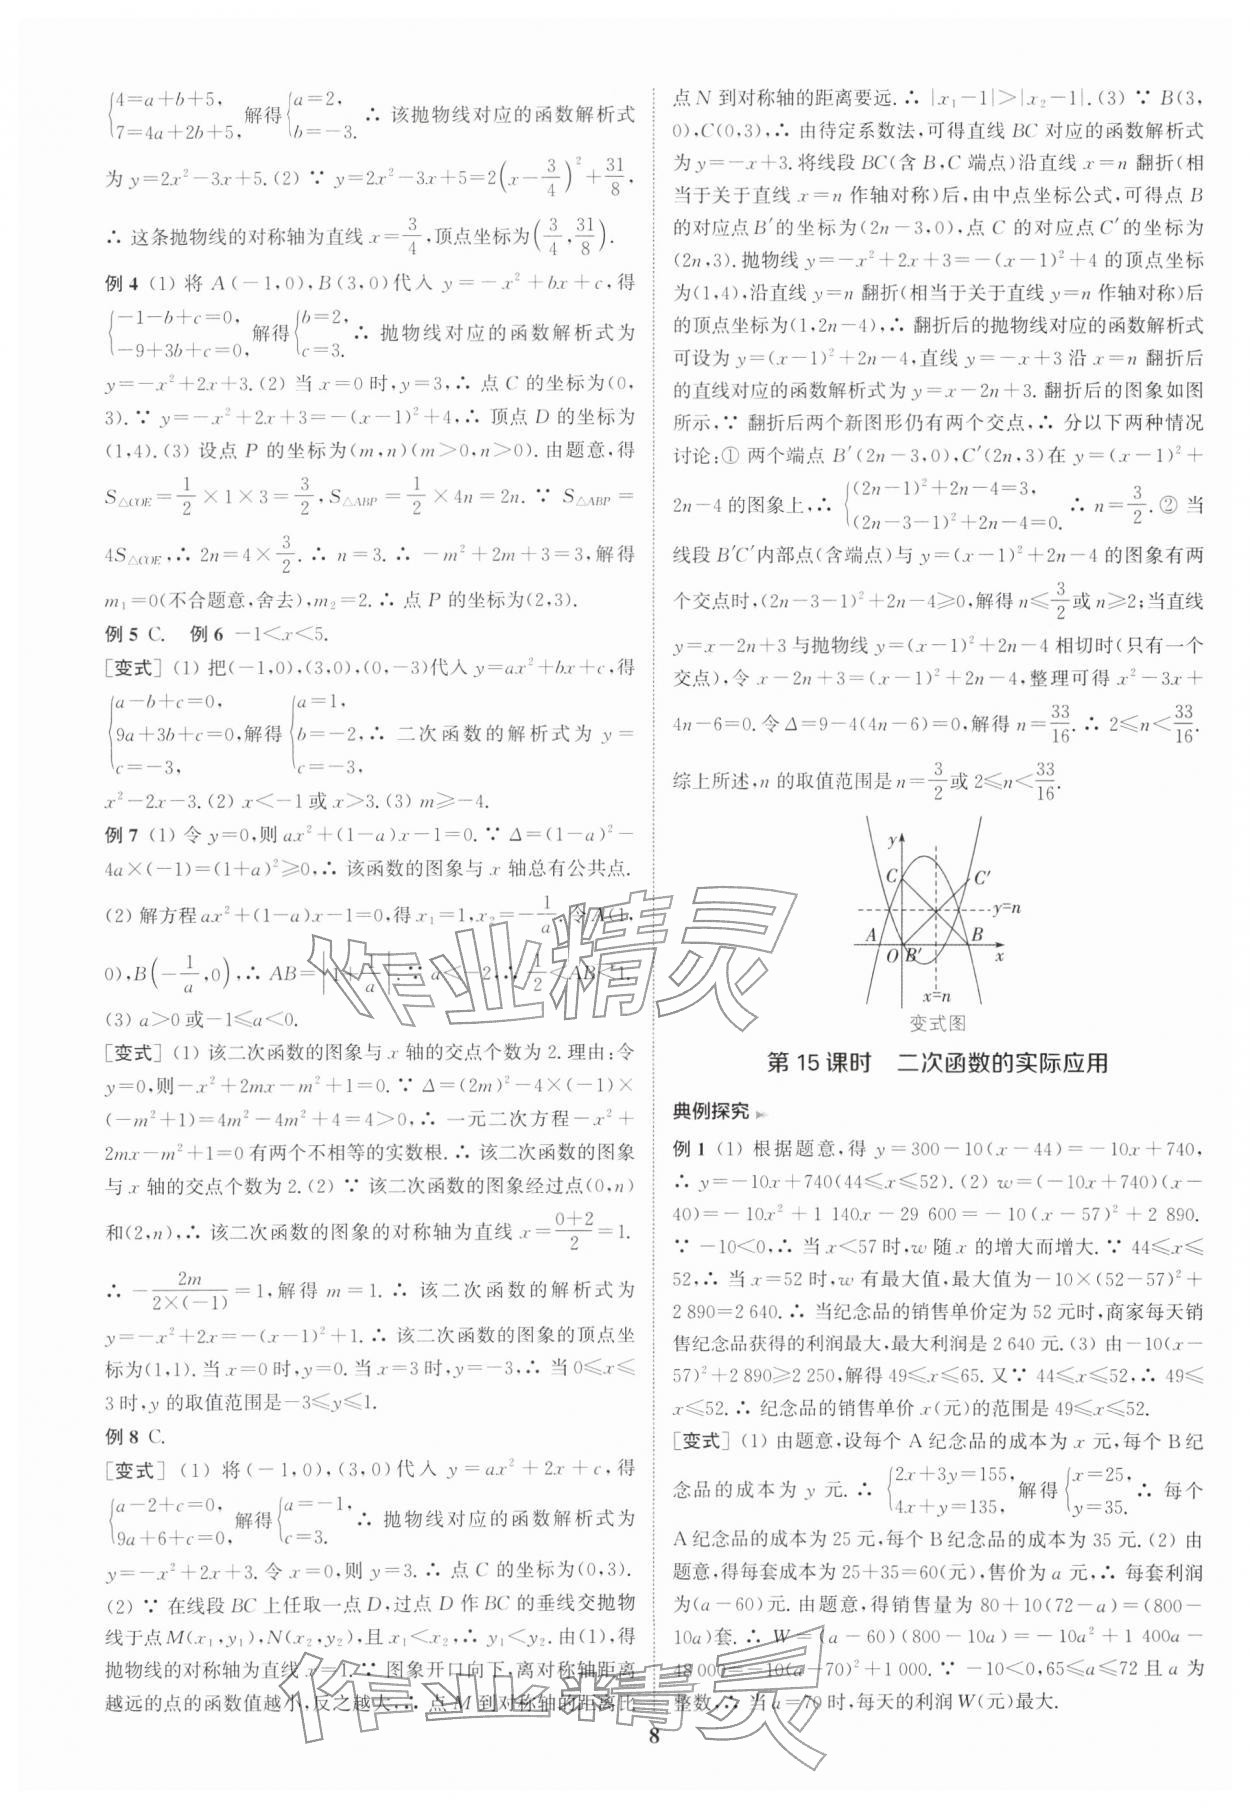 {4=a+b+5, 7=4a+2b+5, 解得{a=2, b=-3. ∴ 该抛物线对应的函数解析式
为 y=2x²-3x+5.(2) ∵ y=2x²-3x+5=2(x-3/4)²+31/8,
∴ 这条抛物线的对称轴为直线 x=3/4,顶点坐标为(3/4,31/8).
例 4 (1) 将 A(-1,0),B(3,0)代入 y=-x²+bx+c,得
{-1-b+c=0, -9+3b+c=0, 解得{b=2, c=3. ∴ 抛物线对应的函数解析式为
y=-x²+2x+3.(2) 当 x=0 时,y=3,∴ 点 C 的坐标为(0,
3).∵ y=-x²+2x+3=-(x-1)²+4,∴ 顶点 D 的坐标为
(1,4).(3) 设点 P 的坐标为(m,n)(m>0,n>0).由题意,得
S△COE=1/2×1×3=3/2,S△ABP=1/2×4n=2n. ∵ S△ABP=
4S△COE,∴ 2n=4×3/2.∴ n=3.∴ -m²+2m+3=3,解得
m₁=0(不合题意,舍去),m₂=2.∴ 点 P 的坐标为(2,3).
例 5 C. 例 6 -1<x<5.
[变式] (1) 把(-1,0),(3,0),(0,-3)代入 y=ax²+bx+c,得
{a-b+c=0, 9a+3b+c=0, c=-3, 解得{a=1, b=-2, c=-3, ∴ 二次函数的解析式为 y=
x²-2x-3.(2) x<-1或x>3.(3) m≥-4.
例 7 (1) 令 y=0,则 ax²+(1-a)x-1=0.∵ Δ=(1-a)²-
4a×(-1)=(1+a)²≥0,∴ 该函数的图象与 x 轴总有公共点.
(2) 解方程 ax²+(1-a)x-1=0,得 x₁=1,x₂=-1/a.令 A(1,
0),B(-1/a,0),∴ AB=|1+1/a|.∵ a<-2,∴ 1/2<AB<1.
(3) a>0 或-1≤a<0.
[变式] (1) 该二次函数的图象与 x 轴的交点个数为 2.理由:令
y=0,则-x²+2mx-m²+1=0.∵ Δ=(2m)²-4×(-1)×
(-m²+1)=4m²-4m²+4=4>0,∴ 一元二次方程-x²+
2mx-m²+1=0 有两个不相等的实数根.∴ 该二次函数的图象
与 x 轴的交点个数为 2.(2) ∵ 该二次函数的图象经过点(0,n)
和(2,n),∴ 该二次函数的图象的对称轴为直线 x=(0+2)/2=1.
∴ -2m/(2×(-1))=1,解得 m=1.∴ 该二次函数的解析式为
y=-x²+2x=-(x-1)²+1.∴ 该二次函数的图象的顶点坐
标为(1,1).当 x=0 时,y=0.当 x=3 时,y=-3,∴ 当 0≤x≤
3 时,y 的取值范围是-3≤y≤1.
例 8 C.
[变式] (1) 将(-1,0),(3,0)代入 y=ax²+2x+c,得
{a-2+c=0, 9a+6+c=0, 解得{a=-1, c=3. ∴ 抛物线对应的函数解析式为
y=-x²+2x+3.令 x=0,则 y=3.∴ 点 C 的坐标为(0,3).
(2) ∵ 在线段 BC 上任取一点 D,过点 D 作 BC 的垂线交抛物
线于点M(x₁,y₁),N(x₂,y₂),且 x₁<x₂,∴ y₁<y₂.由(1),得
抛物线的对称轴为直线 x=1.∵ 图象开口向下,离对称轴距离
越远的点的函数值越小,反之越大,∴ 点 M 到对称轴的距离比
点 N 到对称轴的距离要远.∴ |x₁-1|>|x₂-1|.(3) ∵ B(3,
0),C(0,3),∴ 由待定系数法,可得直线 BC 对应的函数解析式
为 y=-x+3.将线段 BC(含 B,C 端点)沿直线 x=n 翻折(相
当于关于直线 x=n 作轴对称)后,由中点坐标公式,可得点 B
的对应点 B′的坐标为(2n-3,0),点 C 的对应点 C′的坐标为
(2n,3).抛物线 y=-x²+2x+3=-(x-1)²+4 的顶点坐标
为(1,4),沿直线 y=n 翻折(相当于关于直线 y=n 作轴对称)后
的顶点坐标为(1,2n-4),∴ 翻折后的抛物线对应的函数解析式
可设为 y=(x-1)²+2n-4,直线 y=-x+3 沿 x=n 翻折后
的直线对应的函数解析式为 y=x-2n+3.翻折后的图象如图
所示,∵ 翻折后两个新图形仍有两个交点,∴ 分以下两种情况
讨论:① 两个端点 B′(2n-3,0),C′(2n,3)在 y=(x-1)²+
2n-4 的图象上,∴ {(2n-1)²+2n-4=3, (2n-3-1)²+2n-4=0. ∴ n=3/2.② 当
线段 B′C′内部点(含端点)与 y=(x-1)²+2n-4 的图象有两
个交点时,(2n-3-1)²+2n-4≥0,解得 n≤3/2或 n≥2;当直线
y=x-2n+3 与抛物线 y=(x-1)²+2n-4 相切时(只有一个
交点),令 x-2n+3=(x-1)²+2n-4,整理可得 x²-3x+
4n-6=0.令 Δ=9-4(4n-6)=0,解得 n=33/16.∴ 2≤n<33/16.
综上所述,n 的取值范围是 n=3/2或 2≤n<33/16.
y
C
C′
y=n
A
O
B′
B
x
x=n
变式图
第 15 课时 二次函数的实际应用
典例探究
例 1 (1) 根据题意,得 y=300-10(x-44)=-10x+740,
∴ y=-10x+740(44≤x≤52).(2) w=(-10x+740)(x-
40)=-10x²+1 140x-29 600=-10(x-57)²+2 890.
∵ -10<0,∴ 当 x<57 时,w 随 x 的增大而增大.∵ 44≤x≤
52,∴ 当 x=52 时,w 有最大值,最大值为-10×(52-57)²+
2 890=2 640.∴ 当纪念品的销售单价定为 52 元时,商家每天销
售纪念品获得的利润最大,最大利润是 2 640 元.(3) 由-10(x-
57)²+2 890≥2 250,解得 49≤x≤65.又∵ 44≤x≤52,∴ 49≤
x≤52.∴ 纪念品的销售单价 x(元)的范围是 49≤x≤52.
[变式] (1) 由题意,设每个 A 纪念品的成本为 x 元,每个 B 纪
念品的成本为 y 元.∴ {2x+3y=155, 4x+y=135, 解得{x=25, y=35. ∴ 每个
A 纪念品的成本为 25 元,每个 B 纪念品的成本为 35 元.(2) 由
题意,得每套成本为 25+35=60(元),售价为 a 元,∴ 每套利润
为(a-60)元.由题意,得销售量为 80+10(72-a)=(800-
10a)套.∴ W=(a-60)(800-10a)=-10a²+1 400a-
48 000=-10(a-70)²+1 000.∵ -10<0,65≤a≤72 且 a 为
整数,∴ 当 a=70 时,每天的利润 W(元)最大.
8
作业精灵
作业精灵